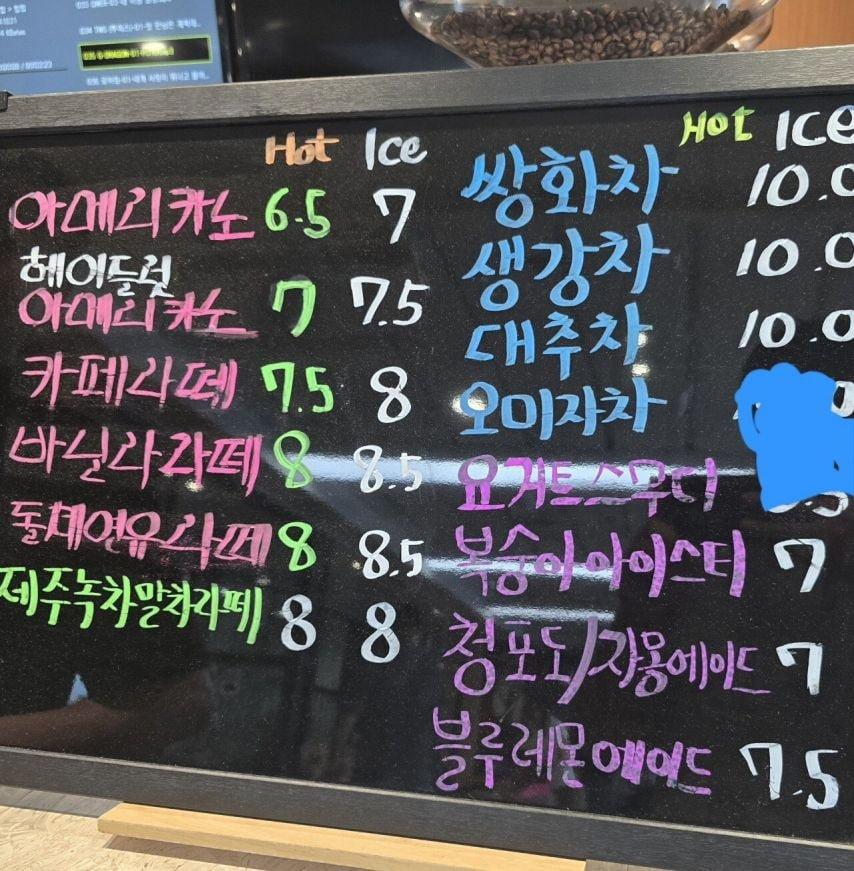 Hot Ice
아메리카노 6.5 7
헤이즐럿
아메리카노 7 7.5
카페라떼 7.5 8
바닐라라떼 8 8.5
돌체연유라떼 8 8.5
제주녹차말차라떼 8 8
Hot Ice
쌍화차 10.0
생강차 10.0
대추차 10.0
오미자차
요거트스무디
복숭아아이스티 7
청포도/자몽에이드 7
블루레몬에이드 7.5